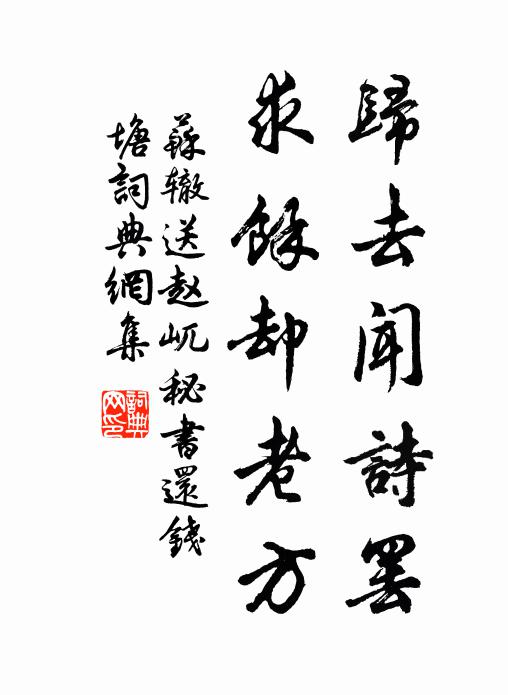 歸去闻詩罢
求餘却老方
蘇辙送赵屼秘書還錢
塘詞典網集
詞典网印